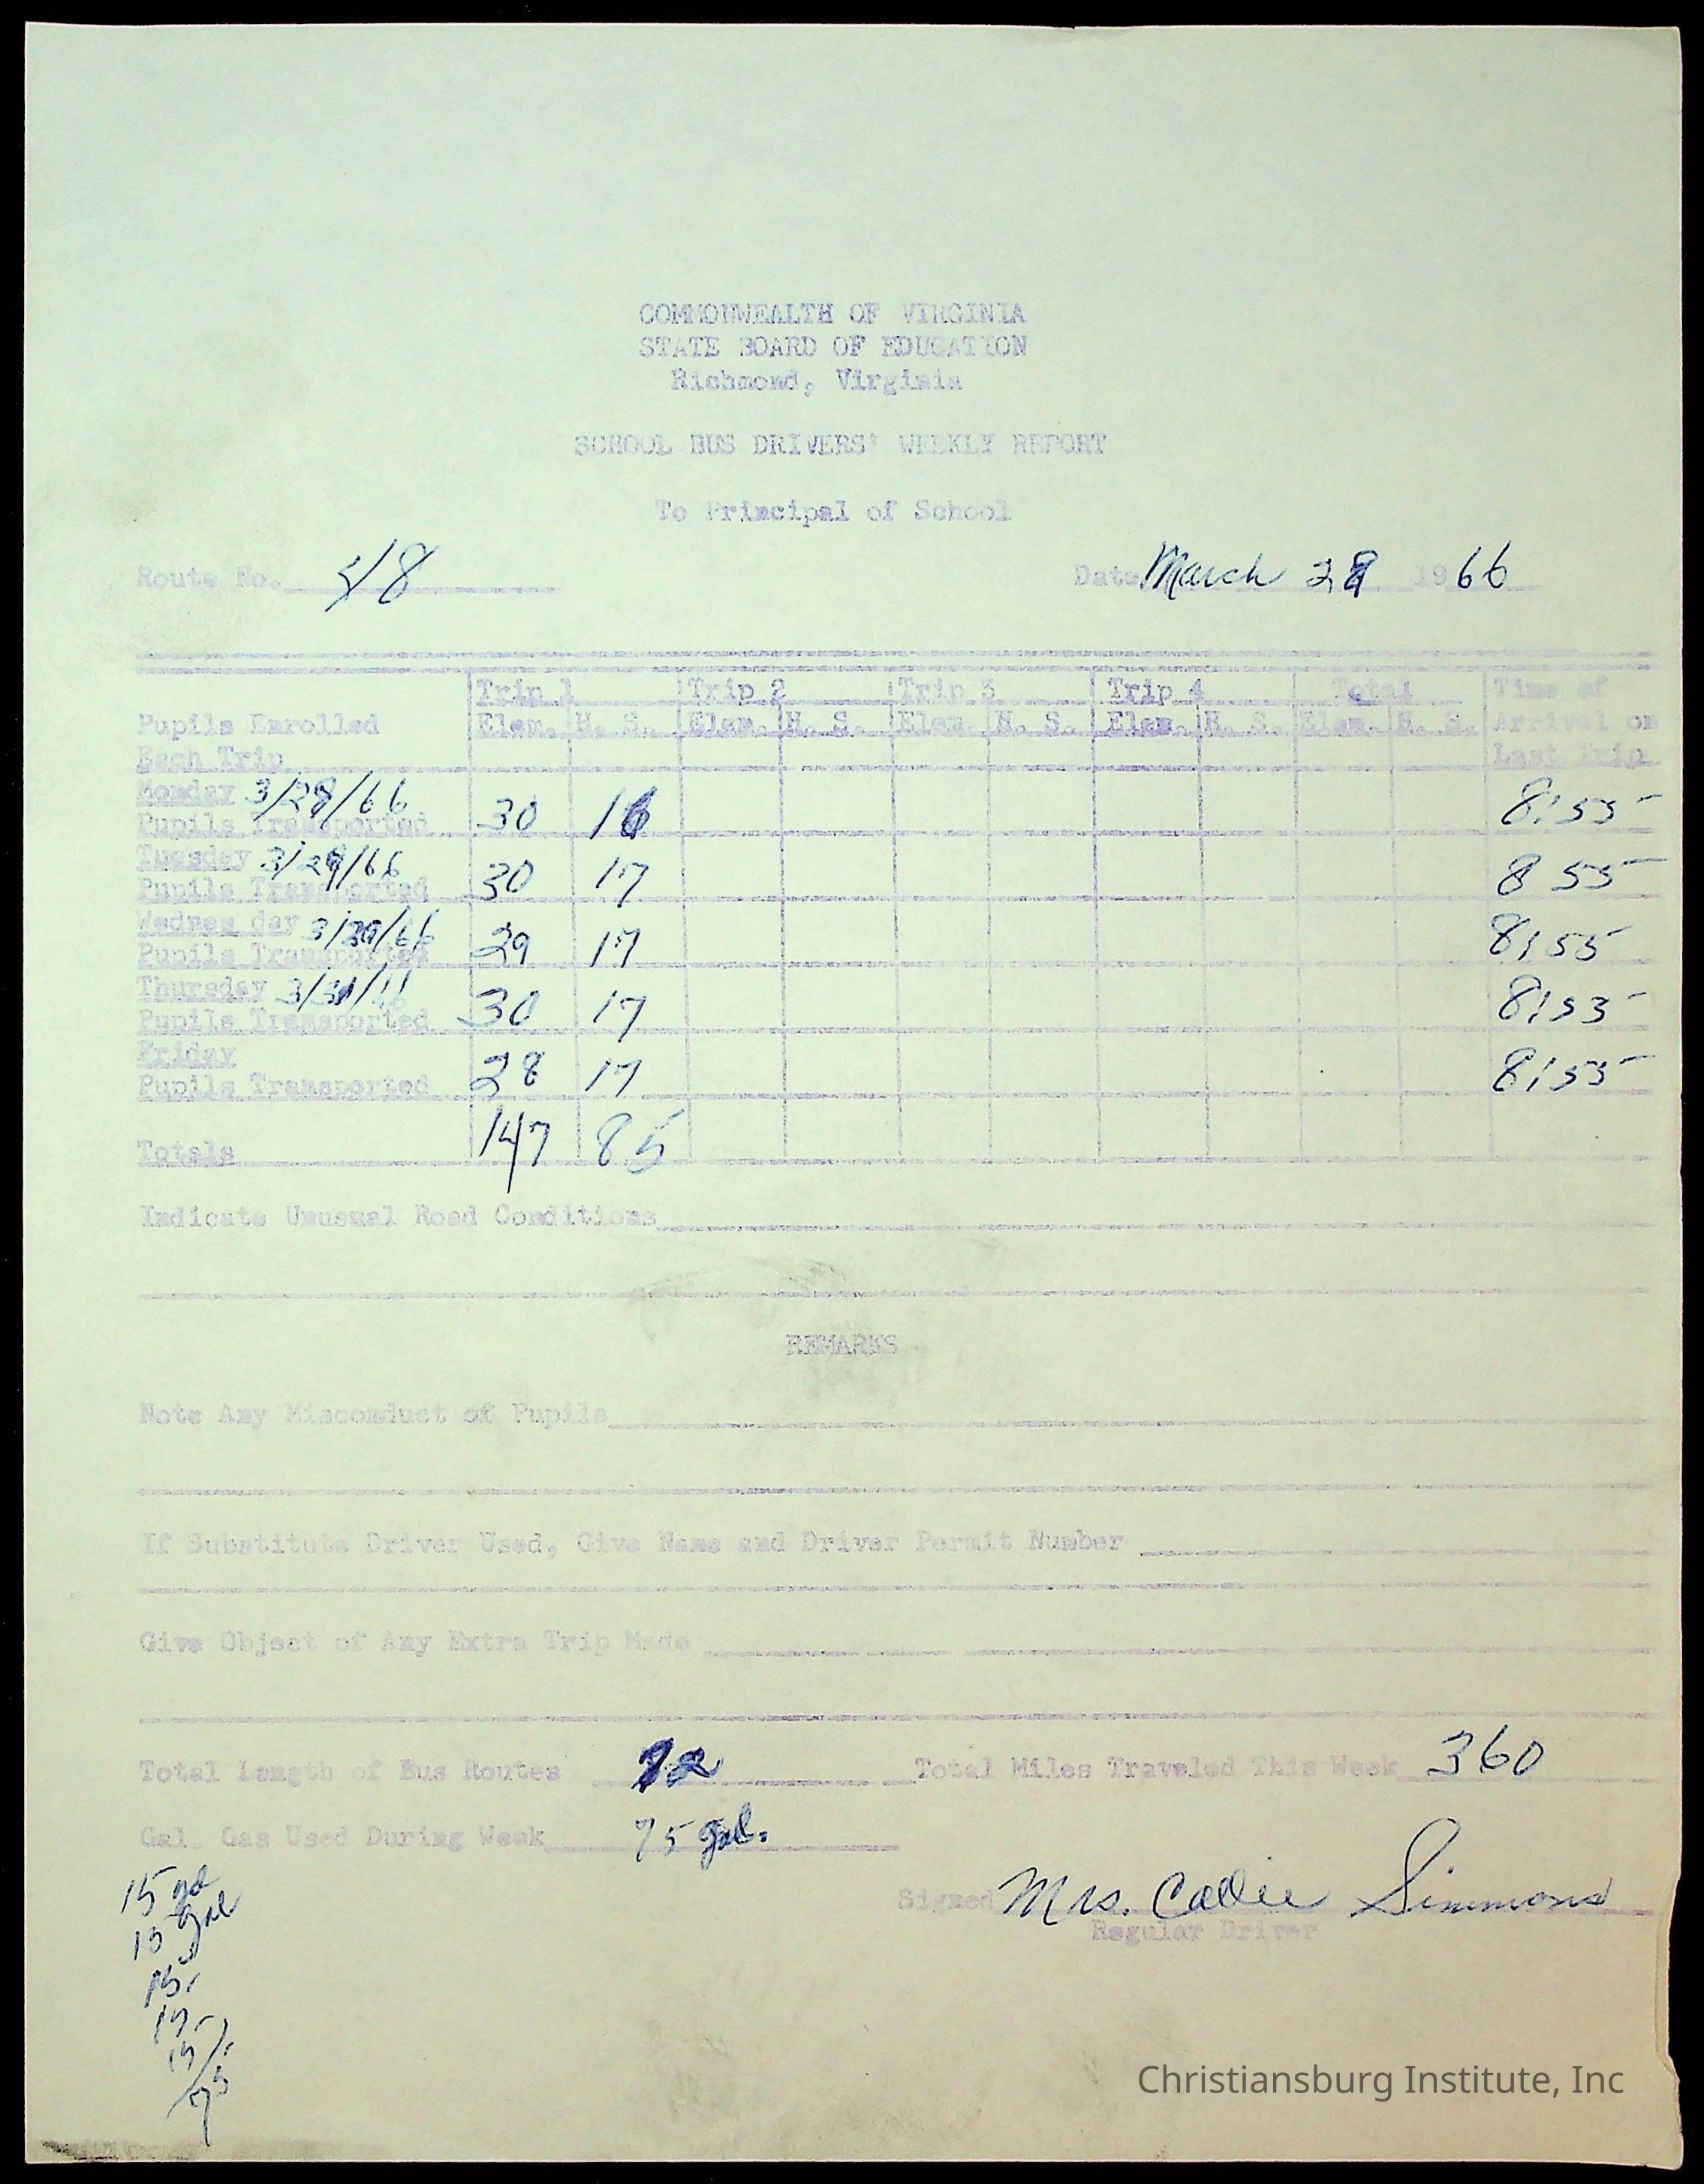 COMMONWEALTH OF VIRGINIA
STATE BOARD OF EDUCATION
Richmond, Virginia
SCHOOL BUS DRIVERS' WEEKLY REPORT
To Principal of School
Route No. 48 Date March 28 1966
Trip 1 Trip 2 Trip 3 Trip 4 Total Time of
Pupils Enrolled Elem. H. S. Elem. H. S. Elem. H. S. Elem. H. S. Elem. H. S. Arrival on
Each Trip Last Trip
Monday 3/28/66
Pupils Transported 30 16 8:55
Tuesday 3/29/66
Pupils Transported 30 17 8 55
Wednes day 3/30/66
Pupils Transported 29 17 8:55
Thursday 3/31/66
Pupils Transported 30 17 8:55
Friday
Pupils Transported 28 17 8:55
Totals 147 85
Indicate Unusual Road Conditions
REMARKS
Note Any Misconduct of Pupils
If Substitute Driver Used, Give Name and Driver Permit Number
Give Object of Any Extra Trip Made
Total Length of Bus Routes 72 Total Miles Traveled This Week 360
Gal. Gas Used During Week 75 gal.
Signed Mrs. Callie Simmons
Regular Driver
15 gal
15 gal
15
15
15
75
Christiansburg Institute, Inc